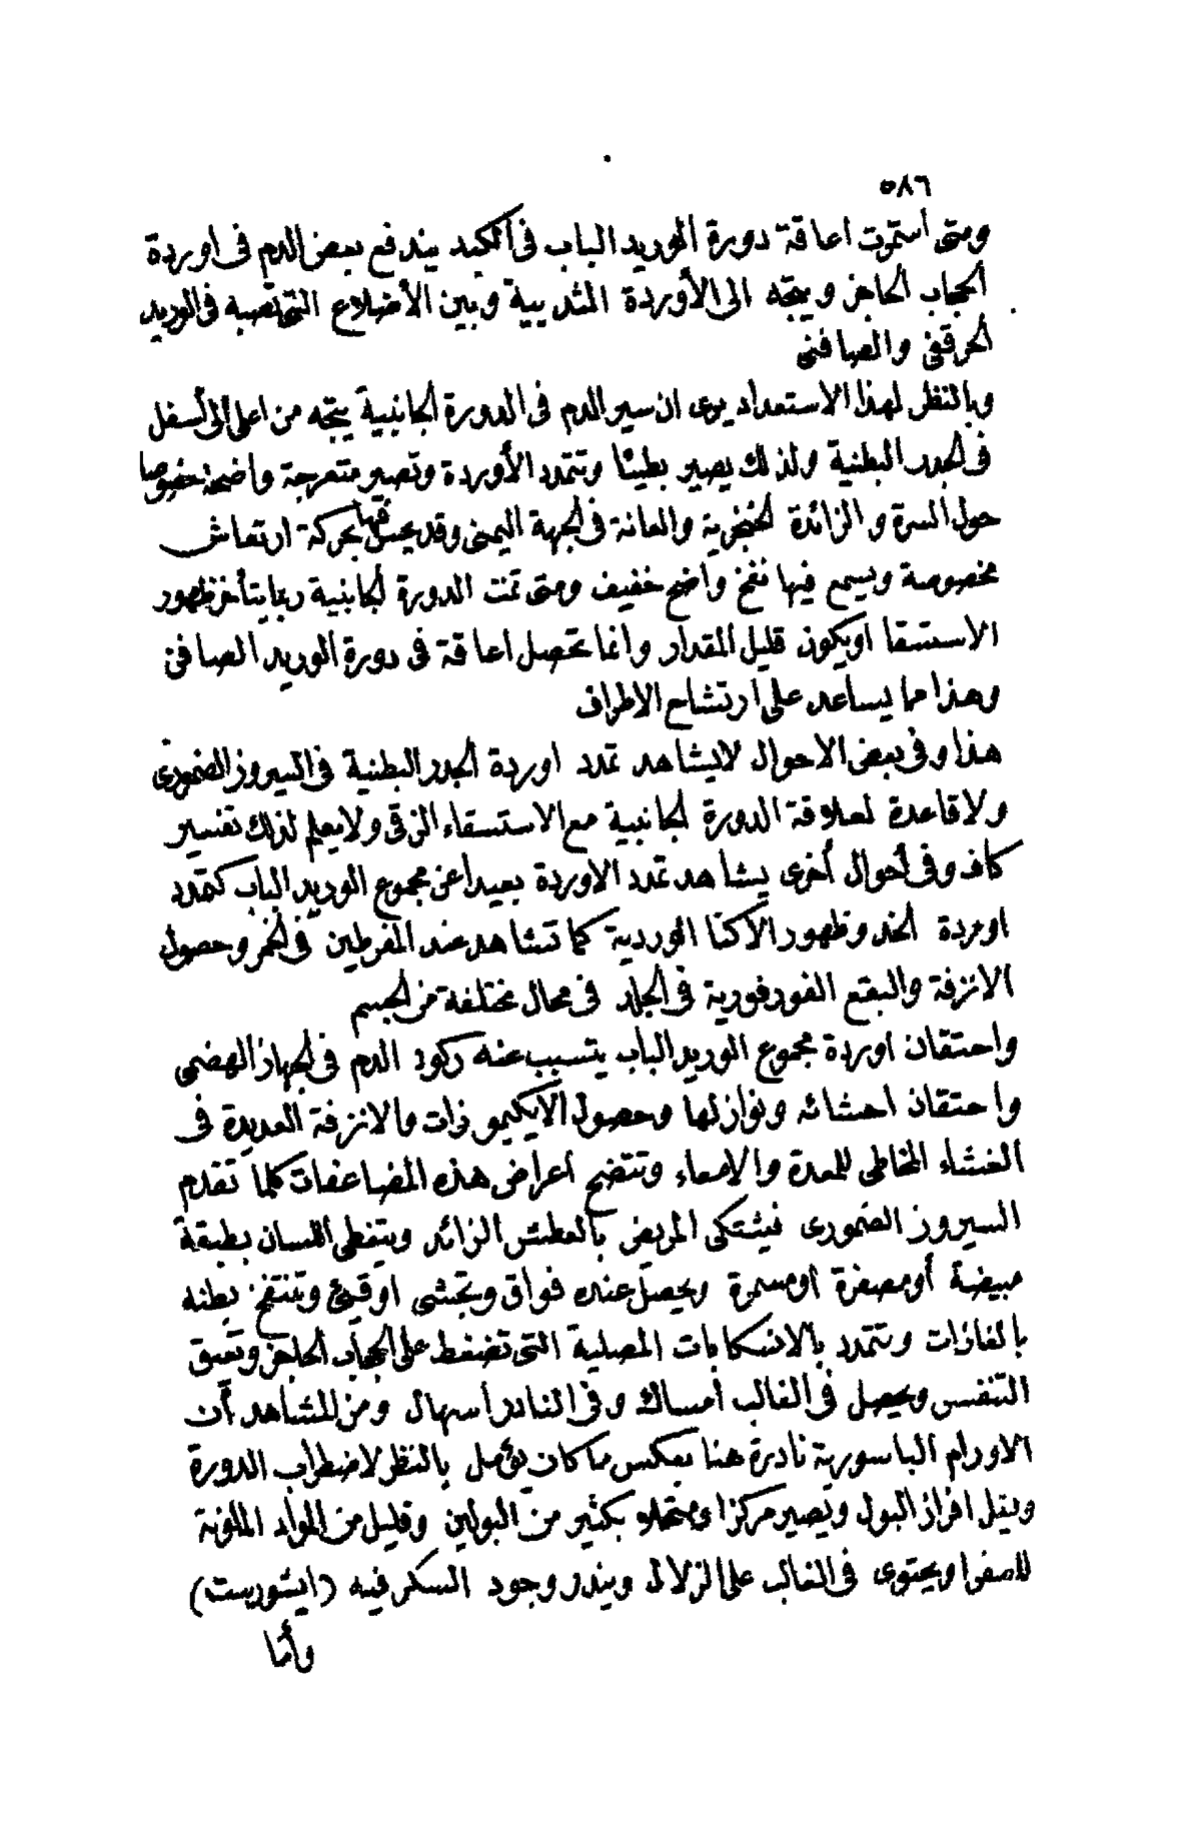 ٥٨٦
ومتى استمرت اعاقة دورة الوريد الباب فى الكبد يندفع بعض الدم فى اوردة
الحجاب الحاجز ويتجه الى الأوردة الثديية وبين الأضلاع التى تصبه فى الوريد
الحرقفى والصافنى
وبالنظر لهذا الاستعداد يرى ان سير الدم فى الدورة الجانبية يتجه من اعلى الى أسفل
فى الجدر البطنية ولذلك يصير بطيئا وتتمدد الأوردة وتصير متعرجة واضحة خصوصا
حول السرة والزائدة الخنجرية والعانة فى الجهة اليمنى وقد يحس فيها بحركة ارتعاش
مخصوصة ويسمع فيها نفخ واضح خفيف ومتى تمت الدورة الجانبية ربما يتأخر ظهور
الاستسقا او يكون قليل المقدار وانما تحصل اعاقة فى دورة الوريد الصافن
وهذا مما يساعد على ارتشاح الاطراف
هذا وفى بعض الاحوال لا يشاهد تمدد اوردة الجدر البطنية فى السيروز الضمورى
ولا قاعدة لعلاقة الدورة الجانبية مع الاستسقاء الزقى ولا يعلم لذلك تفسير
كاف وفى أحوال أخرى يشاهد تمدد الاوردة بعيدا عن مجموع الوريد الباب كتمدد
اوردة الخد وظهور الاكنا الوردية كما تشاهد عند المفرطين فى الخمر وحصول
الانزفة والبقع الفورفورية فى الجلد فى محال مختلفة من الجسم
واحتقان اوردة مجموع الوريد الباب يتسبب عنه ركود الدم فى الجهاز الهضمى
واحتقان احشائه ونوازلها وحصول الايكيموزات والانزفة العديدة فى
الغشاء المخاطى للمعدة والامعاء وتتضح اعراض هذه المضاعفات كلما تقدم
السيروز الضمورى فيشتكى المريض بالعطش الزائد ويتغطى اللسان بطبقة
مبيضة أو مصفرة او مسمرة ويحصل عنده فواق وتجشى او قيئ وتنتفخ بطنه
بالغازات وتتمدد بالانسكابات المصلية التى تضغط على الحجاب الحاجز وتعيق
التنفس ويحصل فى الغالب أمساك وفى النادر أسهال ومن المشاهد أن
الاورام الباسورية نادرة هنا بعكس ما كان يؤمل بالنظر لاضطراب الدورة
ويقل افراز البول ويصير مركزا ومتحملا بكثير من البولين وقليل من المواد الملونة
للصفرا ويحتوى فى الغالب على الزلال ويندر وجود السكر فيه (ايشوريست)
وأما